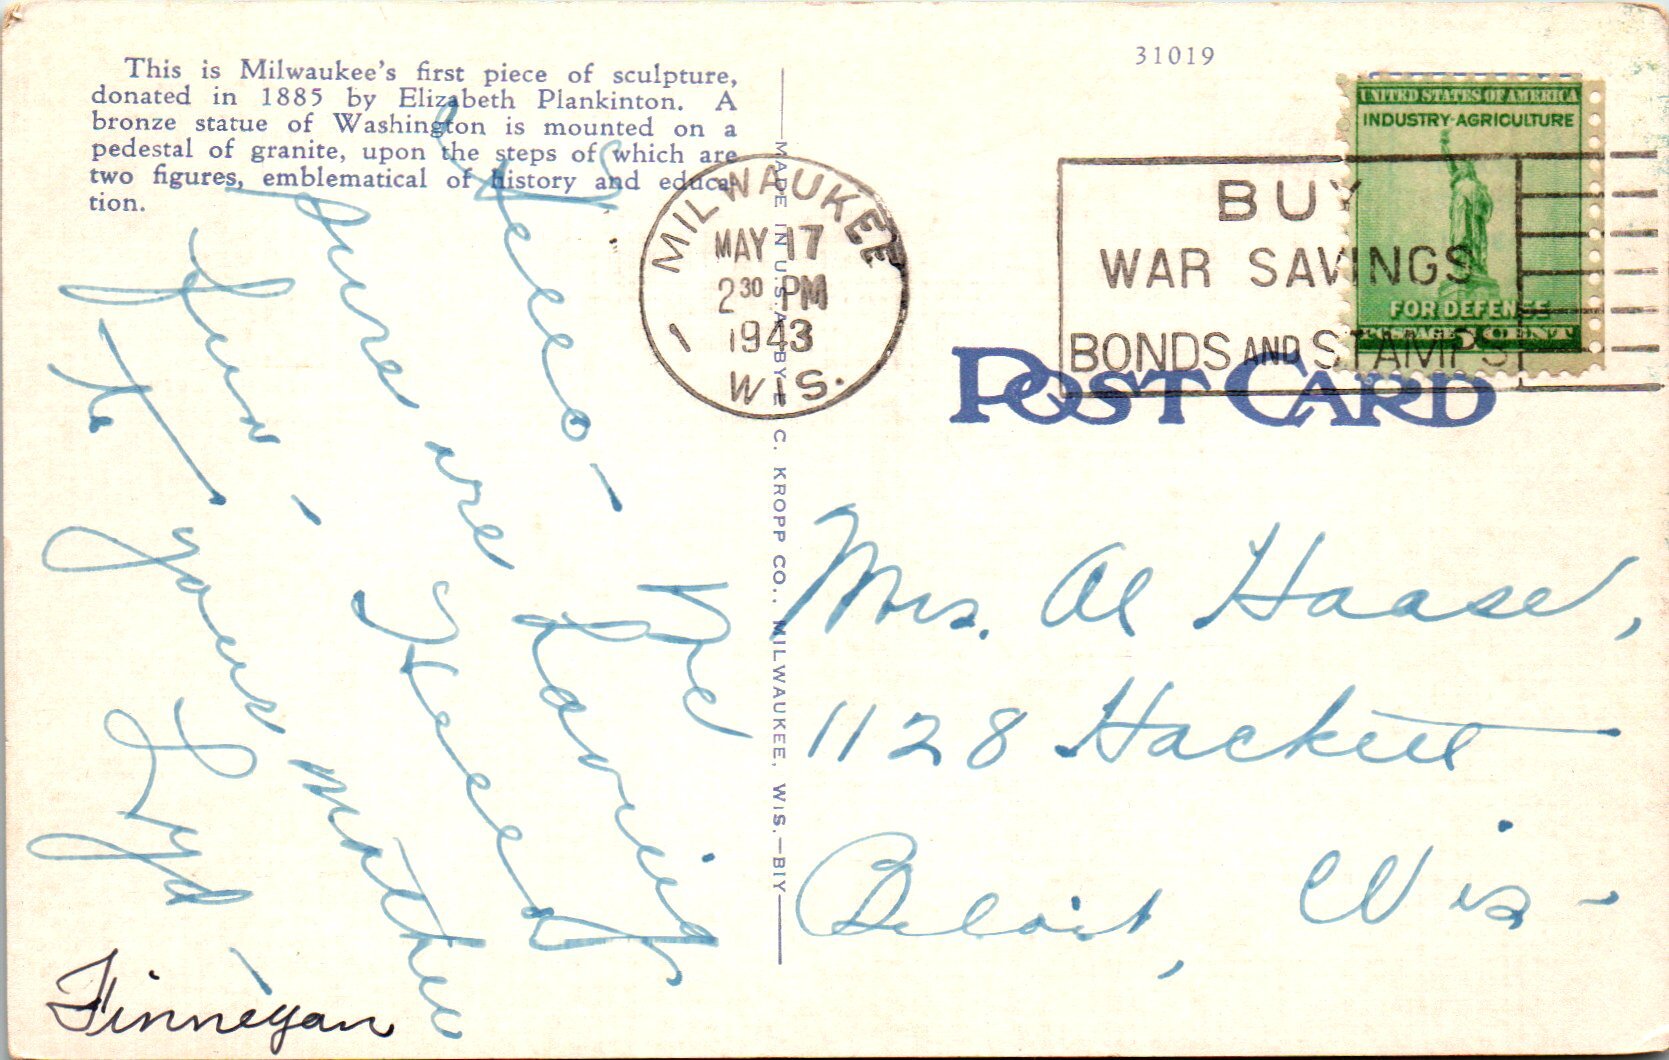 This is Milwaukee's first piece of sculpture,
donated in 1885 by Elizabeth Plankinton. A
bronze statue of Washington is mounted on a
pedestal of granite, upon the steps of which are
two figures, emblematical of history and educa-
tion.
Hello - We
sure are having
fun - Hello
to your mother
Lyd -
Finnegan
MADE IN U.S.A. BY E. C. KROPP CO., MILWAUKEE, WIS.—BIY
31019
MILWAUKEE
MAY 17
2 30 PM
1943
1
WIS.
BUY
WAR SAVINGS
BONDS AND STAMPS
UNITED STATES OF AMERICA
INDUSTRY·AGRICULTURE
FOR DEFENSE
POSTAGE 1 CENT
POST CARD
Mrs. Al Haase,
1128 Hackett
Beloit, Wis -